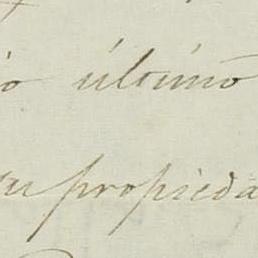 último
su propieda